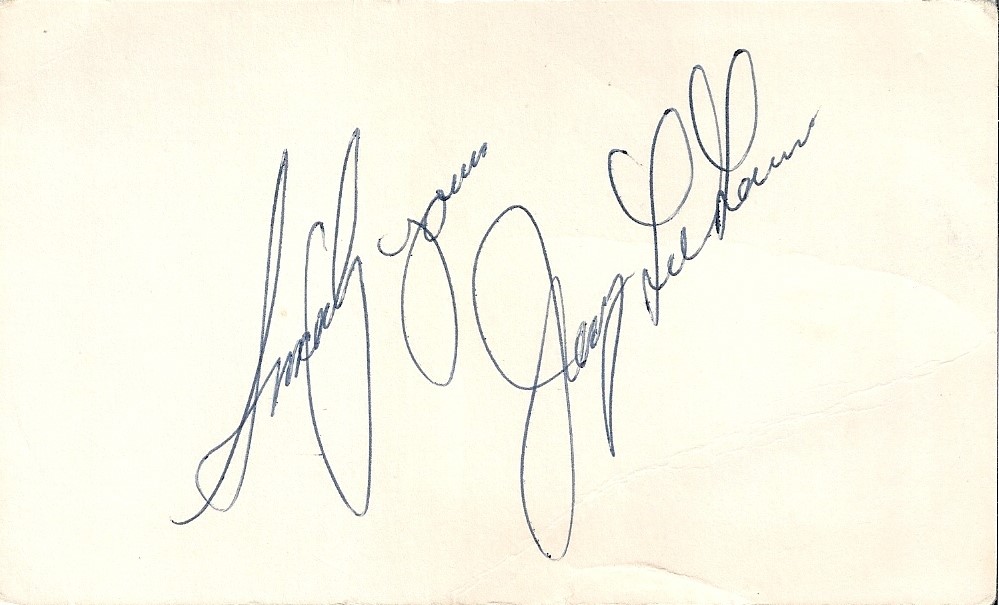 Sincerely yours
Jerry Lee Lewis